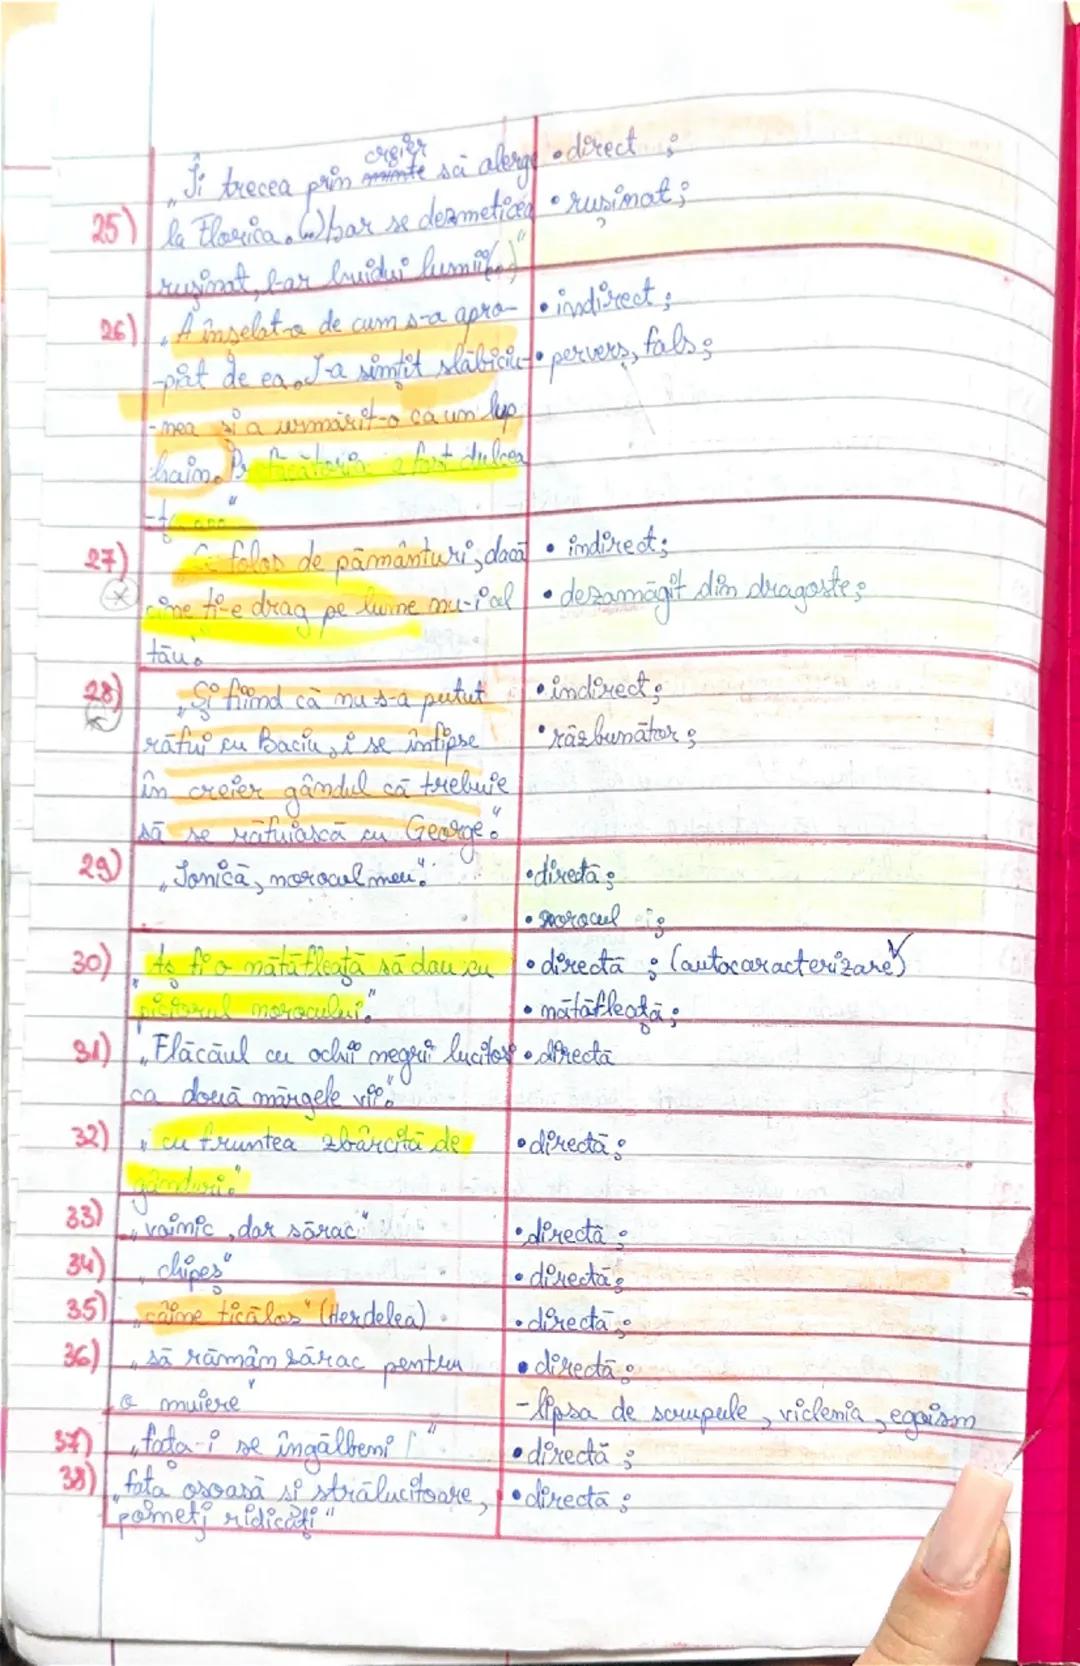 25) „Îi trecea prin creier să alerge • direct ;
la Florica. (...) Dar se dezmeticea • rușinat ;
rușinat, l-ar huidui lumii(...)"
26) „A înșelat-o de cum s-a apro- • indirect ;
-piat de ea. I-a simțit slăbiciu- • pervers, fals ;
-nea și a urmărit-o ca un lup
hain. Prefăcătoria a fost dulcea
27) Ce folos de pământuri, dacă • indirect ;
cine ți-e drag pe lume nu-i al • dezamăgit din dragoste ;
tău.
28) „Și fiind că nu s-a putut • indirect ;
răfui cu Baciu, i se înfipse • răzbunător ;
în creier gândul că trebuie
să se răfuiască cu George."
29) „Ionică, norocul meu". • directă ;
• norocul ei ;
30) „Aș fi o mătăfleață să dau cu • directă ; (autocaracterizare)
piciorul norocului." • mătăfleață ;
31) „Flăcăul cu ochii negrii lucitori • directă
ca două mărgele vii."
32) „cu fruntea zbârcită de • directă ;
gânduri."
33) „voinic, dar sărac" • directă ;
34) „chipeș" • directă ;
35) „câine ticălos" (Herdelea) • directă ;
36) „să rămân sărac pentru • directă ;
o muiere" - lipsa de scrupule, viclenia, egoism
37) „fața-i se îngălbeni" • directă ;
38) „fața osoasă și strălucitoare, • directă ;
pomeți ridicați"